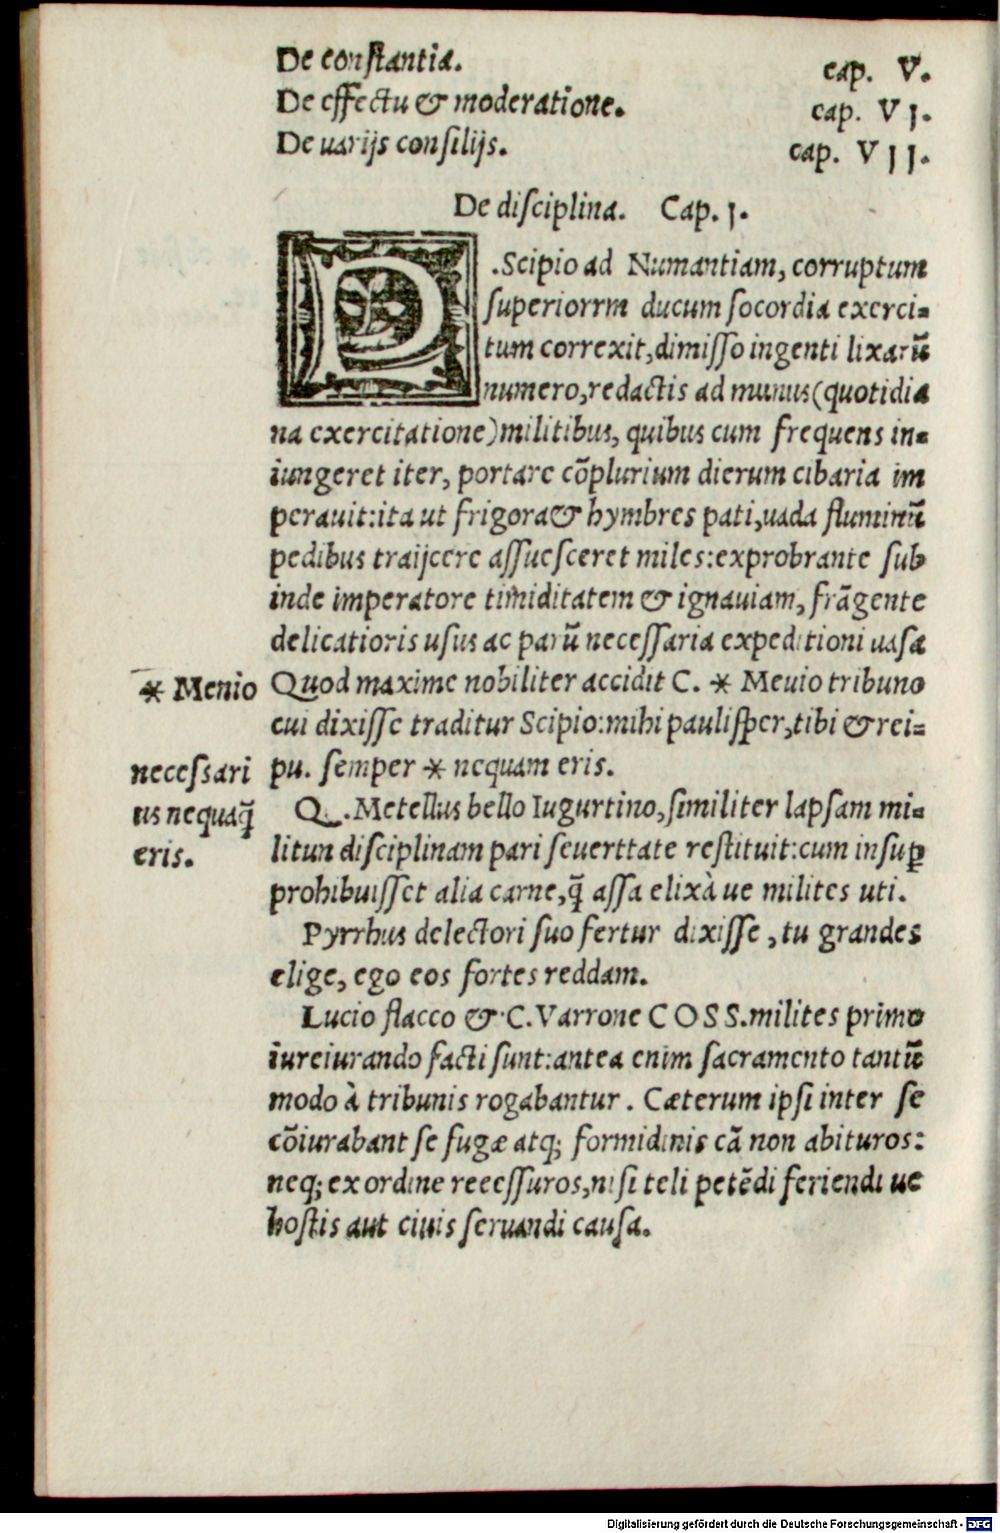 De constantia. cap. V.
De effectu & moderatione. cap. V I.
De uarijs consilijs. cap. V I I.
De disciplina. Cap. I.
P.Scipio ad Numantiam, corruptum
superiorrm ducum socordia exerci-
tum correxit, dimisso ingenti lixarũ
numero, redactis ad munus (quotidia
na exercitatione) militibus, quibus cum frequens in-
iungeret iter, portare cõplurium dierum cibaria im
perauit: ita ut frigora & hymbres pati, uada fluminũ
pedibus traijcere assuesceret miles: exprobrante sub
inde imperatore timiditatem & ignauiam, frãgente
delicatioris usus ac parũ necessaria expeditioni uasa
* Menio Quod maxime nobiliter accidit C. * Meuio tribuno
cui dixisse traditur Scipio: mihi paulisper, tibi & rei-
necessari pu. semper * nequam eris.
us nequaq̃ Q. Metellus bello Iugurtino, similiter lapsam mi-
eris. litun disciplinam pari seuerttate restituit: cum insuꝑ
prohibuisset alia carne, q̃ assa elixà ue milites uti.
Pyrrhus delectori suo fertur dixisse, tu grandes
elige, ego eos fortes reddam.
Lucio flacco & C. Varrone C O S S. milites primo
iureiurando facti sunt: antea enim sacramento tantũ
modo à tribunis rogabantur. Cæterum ipsi inter se
cõiurabant se fugæ atq; formidinis cã non abituros:
neq; ex ordine recessuros, nisi teli petẽdi feriendi ue
hostis aut ciuis seruandi causa.
Digitalisierung gefördert durch die Deutsche Forschungsgemeinschaft - DFG